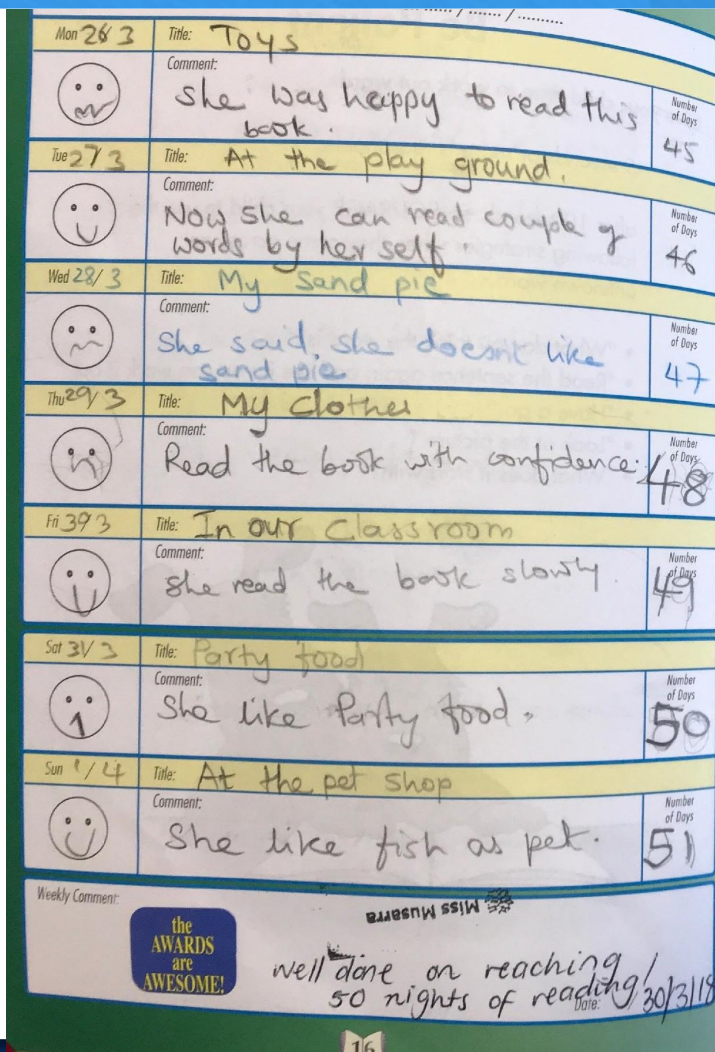 Mon 26/3 Title: Toys
Comment:
She was happy to read this
book.
Number
of Days
45
Tue 27/3 Title: At the play ground.
Comment:
Now she can read couple of
words by her self.
Number
of Days
46
Wed 28/3 Title: My Sand pie
Comment:
She said, she doesnt like
sand pie
Number
of Days
47
Thu 29/3 Title: My Clothes
Comment:
Read the book with confidence.
Number
of Days
48
Fri 39 3 Title: In our Classroom
Comment:
She read the book slowly.
Number
of Days
49
Sat 31/3 Title: Party food
Comment:
She like Party food.
Number
of Days
50
Sun 1/4 Title: At the pet shop
Comment:
She like fish as pet.
Number
of Days
51
Weekly Comment:
Miss Musarra
the
AWARDS
are
AWESOME!
well done on reaching
50 nights of reading!
Date: 30/3/18
16